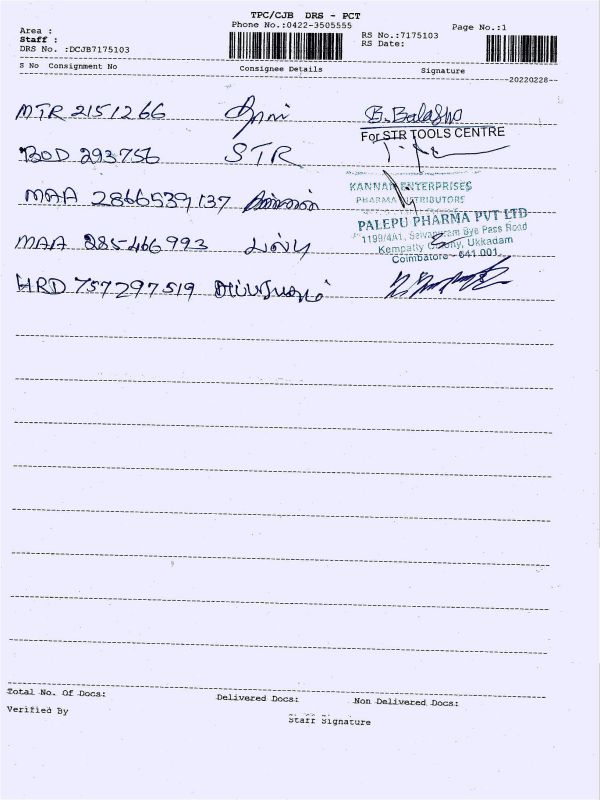 TPC/CJB DRS - PCT
Phone No.:0422-3505555
Page No.:1
Area :
Staff :
RS No.:7175103
DRS No. :DCJB7175103
RS Date:
S No Consignment No Consignee Details Signature
20220228
MTR 2151266
For STR TOOLS CENTRE
BOD 293756 STR
KANNAN ENTERPRISES
PHARMA DISTRIBUTORS
MAA 2866539137
PALEPU PHARMA PVT LTD
1199/4A1, Selvapuram Bye Pass Road
MAA 285466993
Kempatty Colony, Ukkadam
Coimbatore - 641 001.
HRD 757297519
Total No. Of Docs: Delivered Docs: Non Delivered Docs:
Verified By Staff Signature